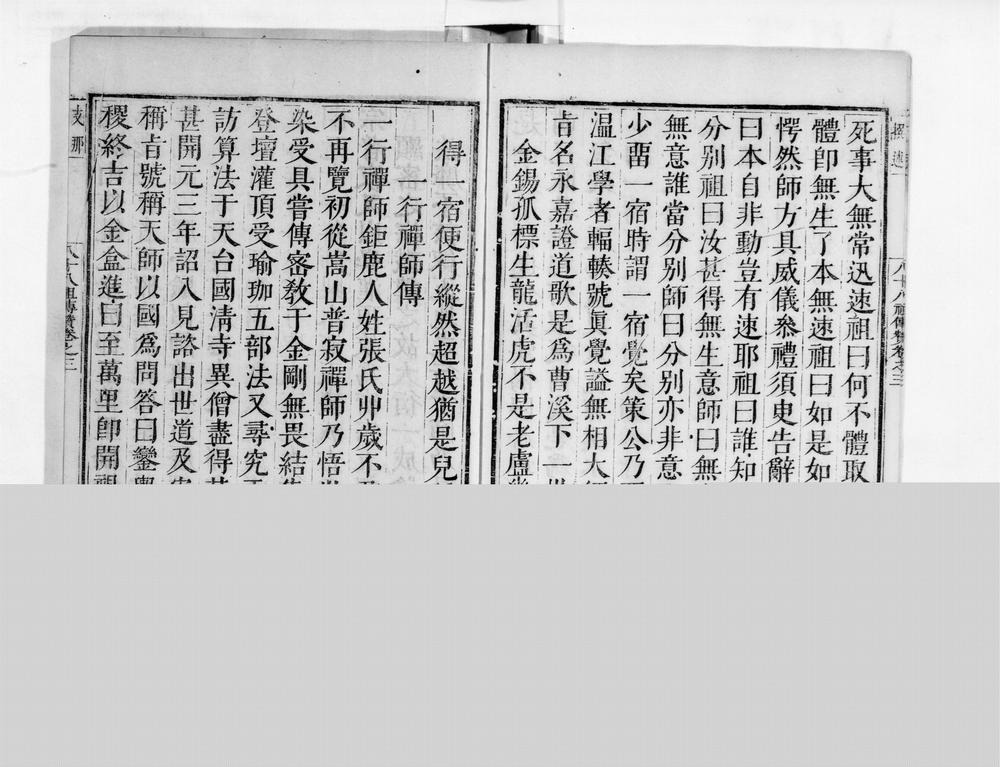 死事大無常迅速祖曰何不體取
體卽無生了本無速祖曰如是如
愕然師方具威儀叅禮須臾告辭
曰本自非動豈有速耶祖曰誰知
分别祖曰汝甚得無生意師曰無
無意誰當分别師曰分别亦非意
少畱一宿時謂一宿覺矣策公乃
溫江學者輻輳號眞覺謚無相大
旨名永嘉證道歌是爲曹溪下一世
金錫孤標生龍活虎不是老盧
得一宿便行縱然超越猶是兒
一行禪師傳
一行禪師鉅鹿人姓張氏丱歲不
不再覽初從嵩山普寂禪師乃悟
染受具嘗傳密敎于金剛無畏結
登壇灌頂受瑜珈五部法又尋究
訪算法于天台國淸寺異僧盡得
甚開元三年詔入見諮出世道及
稱旨號稱天師以國爲問答曰鑾輿
稷終吉以金盒進曰至萬里卽開
支那
八十八祖傳贊卷之三